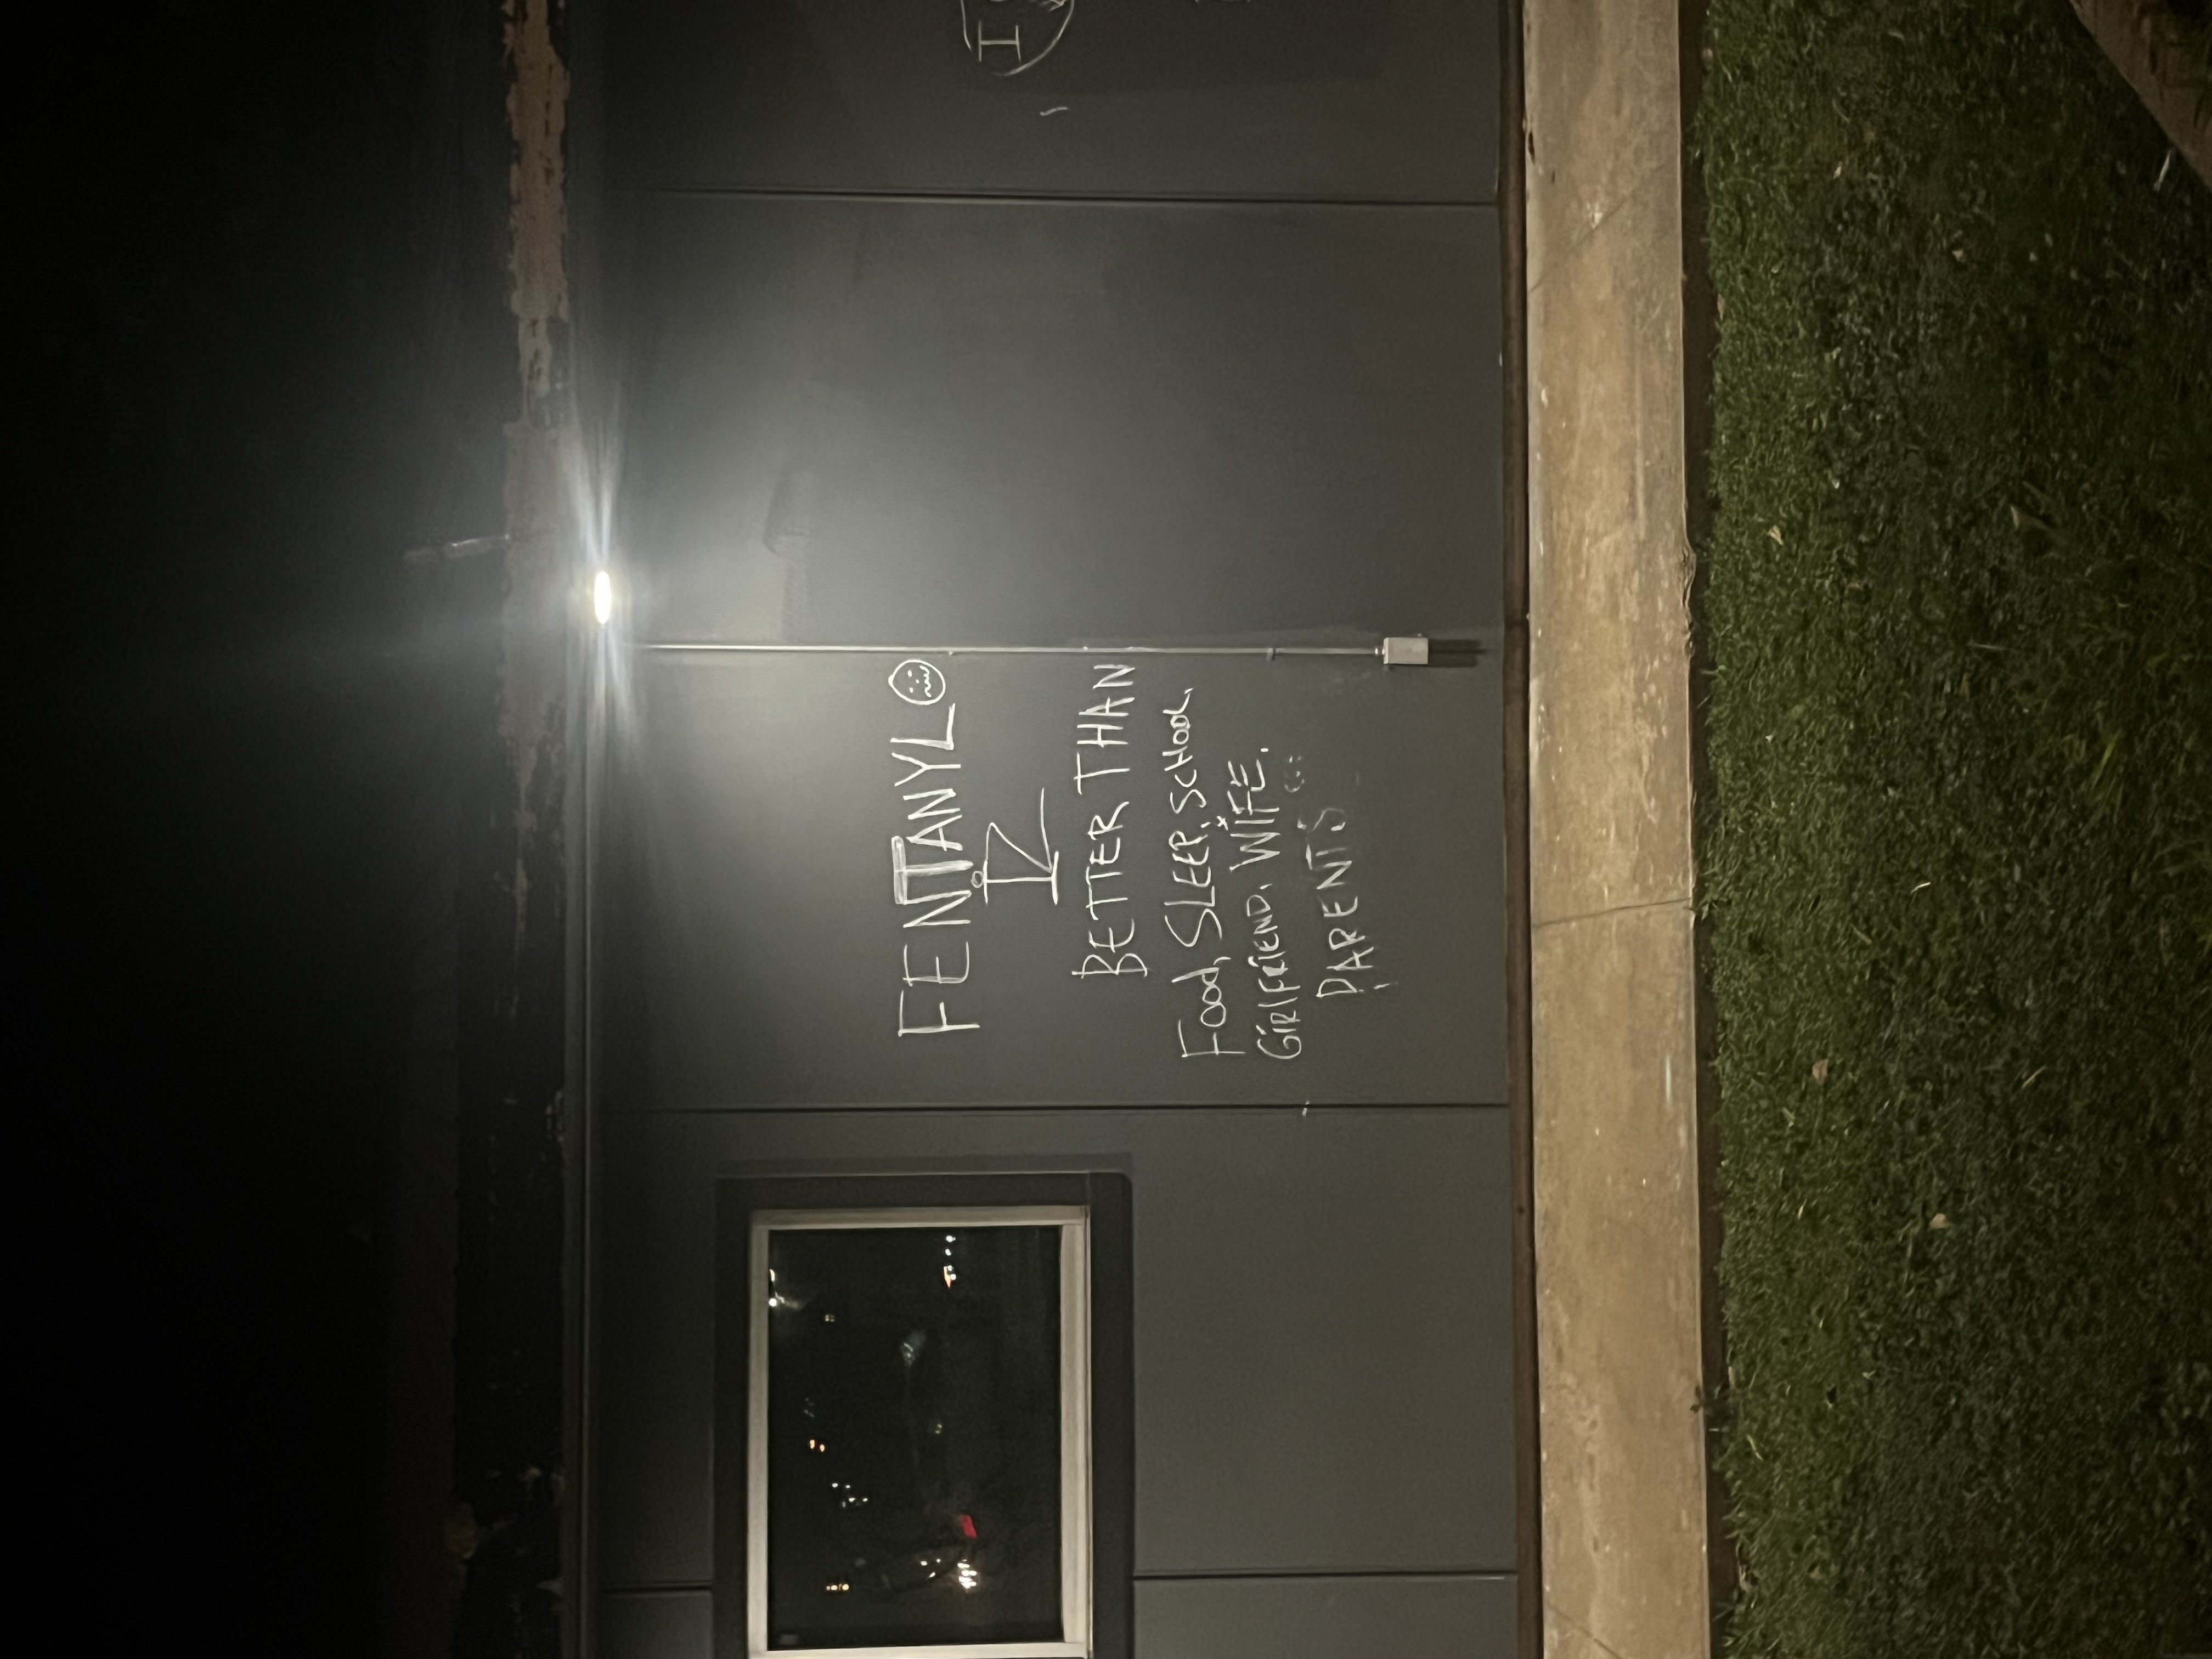 FENTANYL
IZ
BETTER THAN
Food, SLEEP, SCHOOL,
GiRlFRiEND, WiFE,
PARENTS
I